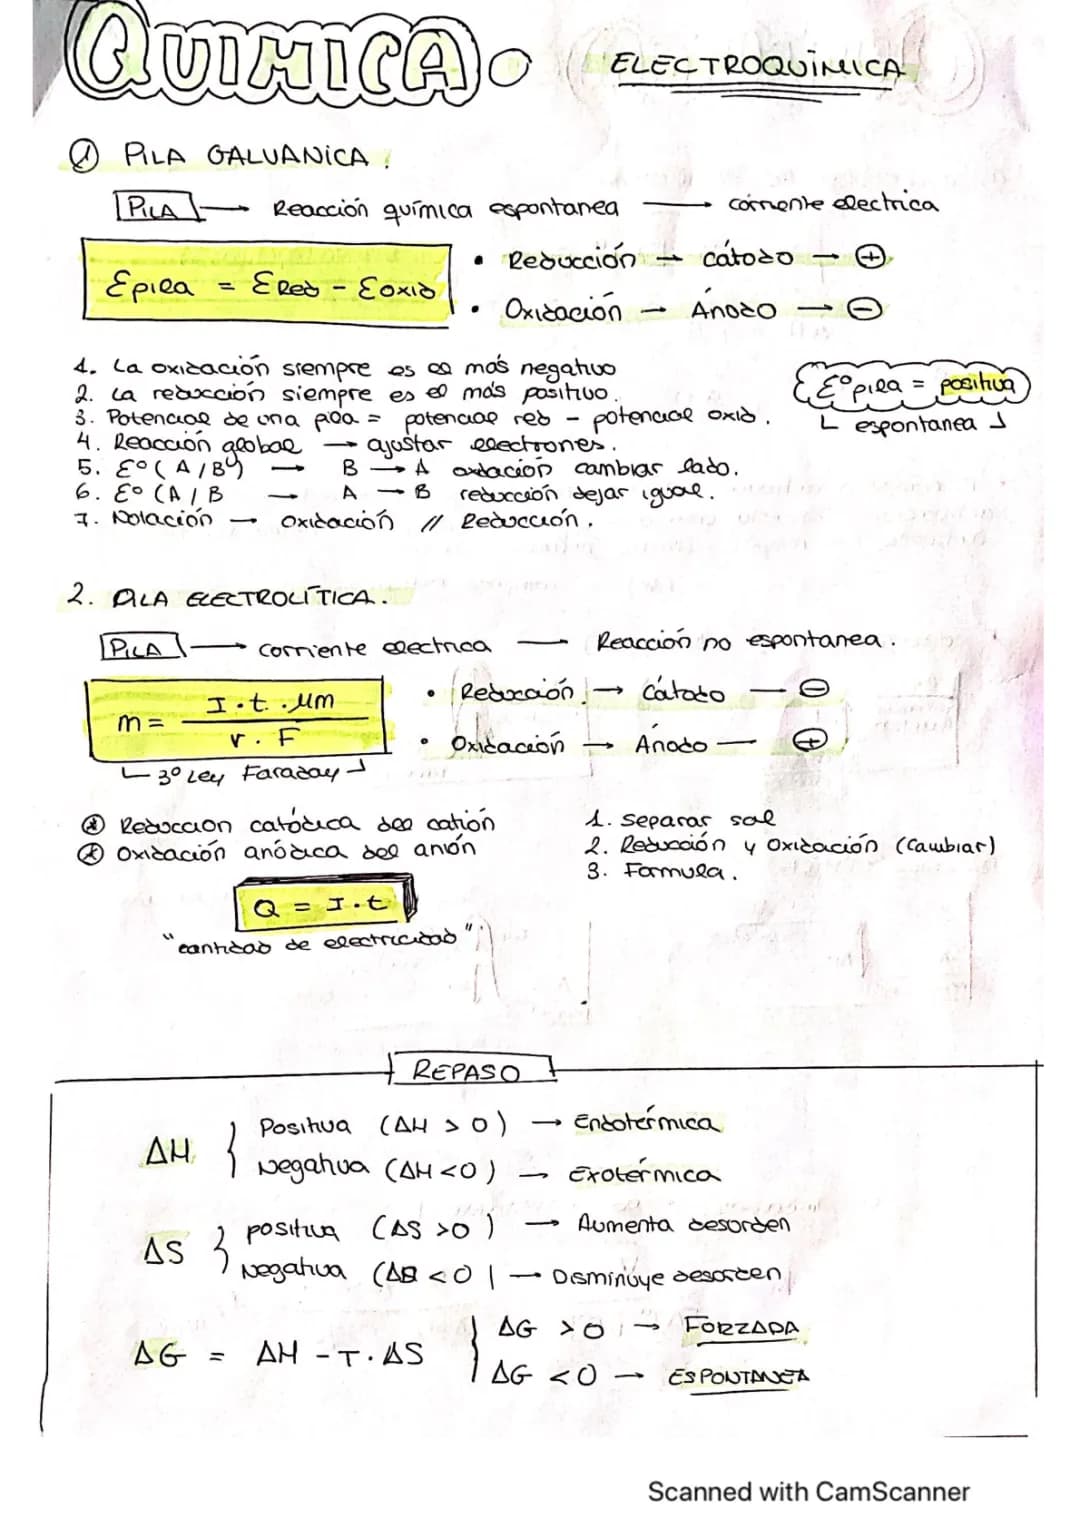 QUIMICA. ELECTROQUÍMICA
① PILA GALVANICA.
PILA → Reacción química espontanea → corriente electrica
Epila = ERed - Eoxid
• Reducción → cátodo → ⊕
• Oxidación → Ánodo → ⊖
1. La oxidación siempre es el más negativo
2. La reducción siempre es el más positivo.
3. Potencial de una pila = potencial red - potencial oxid.
4. Reacción global → ajustar electrones.
5. E° (A/B) → B → A oxidación cambiar lado.
6. E° (A/B → A → B reducción dejar igual.
7. Notación → oxidación // Reducción.
E°pila = positiva
espontanea
2. PILA ELECTROLÍTICA.
PILA → corriente electrica — Reacción no espontanea.
m = I·t·Mm / v·F
3º Ley Faraday
• Reducción → Cátodo — ⊖
• Oxidación → Ánodo — ⊕
⊛ Reducción catódica del catión
⊛ Oxidación anódica del anión
1. Separar sal
2. Reducción y Oxidación (Cambiar)
3. Formula.
Q = I·t
"cantidad de electricidad"
REPASO
ΔH { Positiva (ΔH > 0) → Endotérmica
Negativa (ΔH < 0) → Exotérmica
ΔS { positiva (ΔS > 0) → Aumenta desorden
Negativa (ΔS < 0 | → Disminuye desorden
ΔG = ΔH - T·ΔS { ΔG > 0 → FORZADA
ΔG < 0 → ESPONTANEA
Scanned with CamScanner